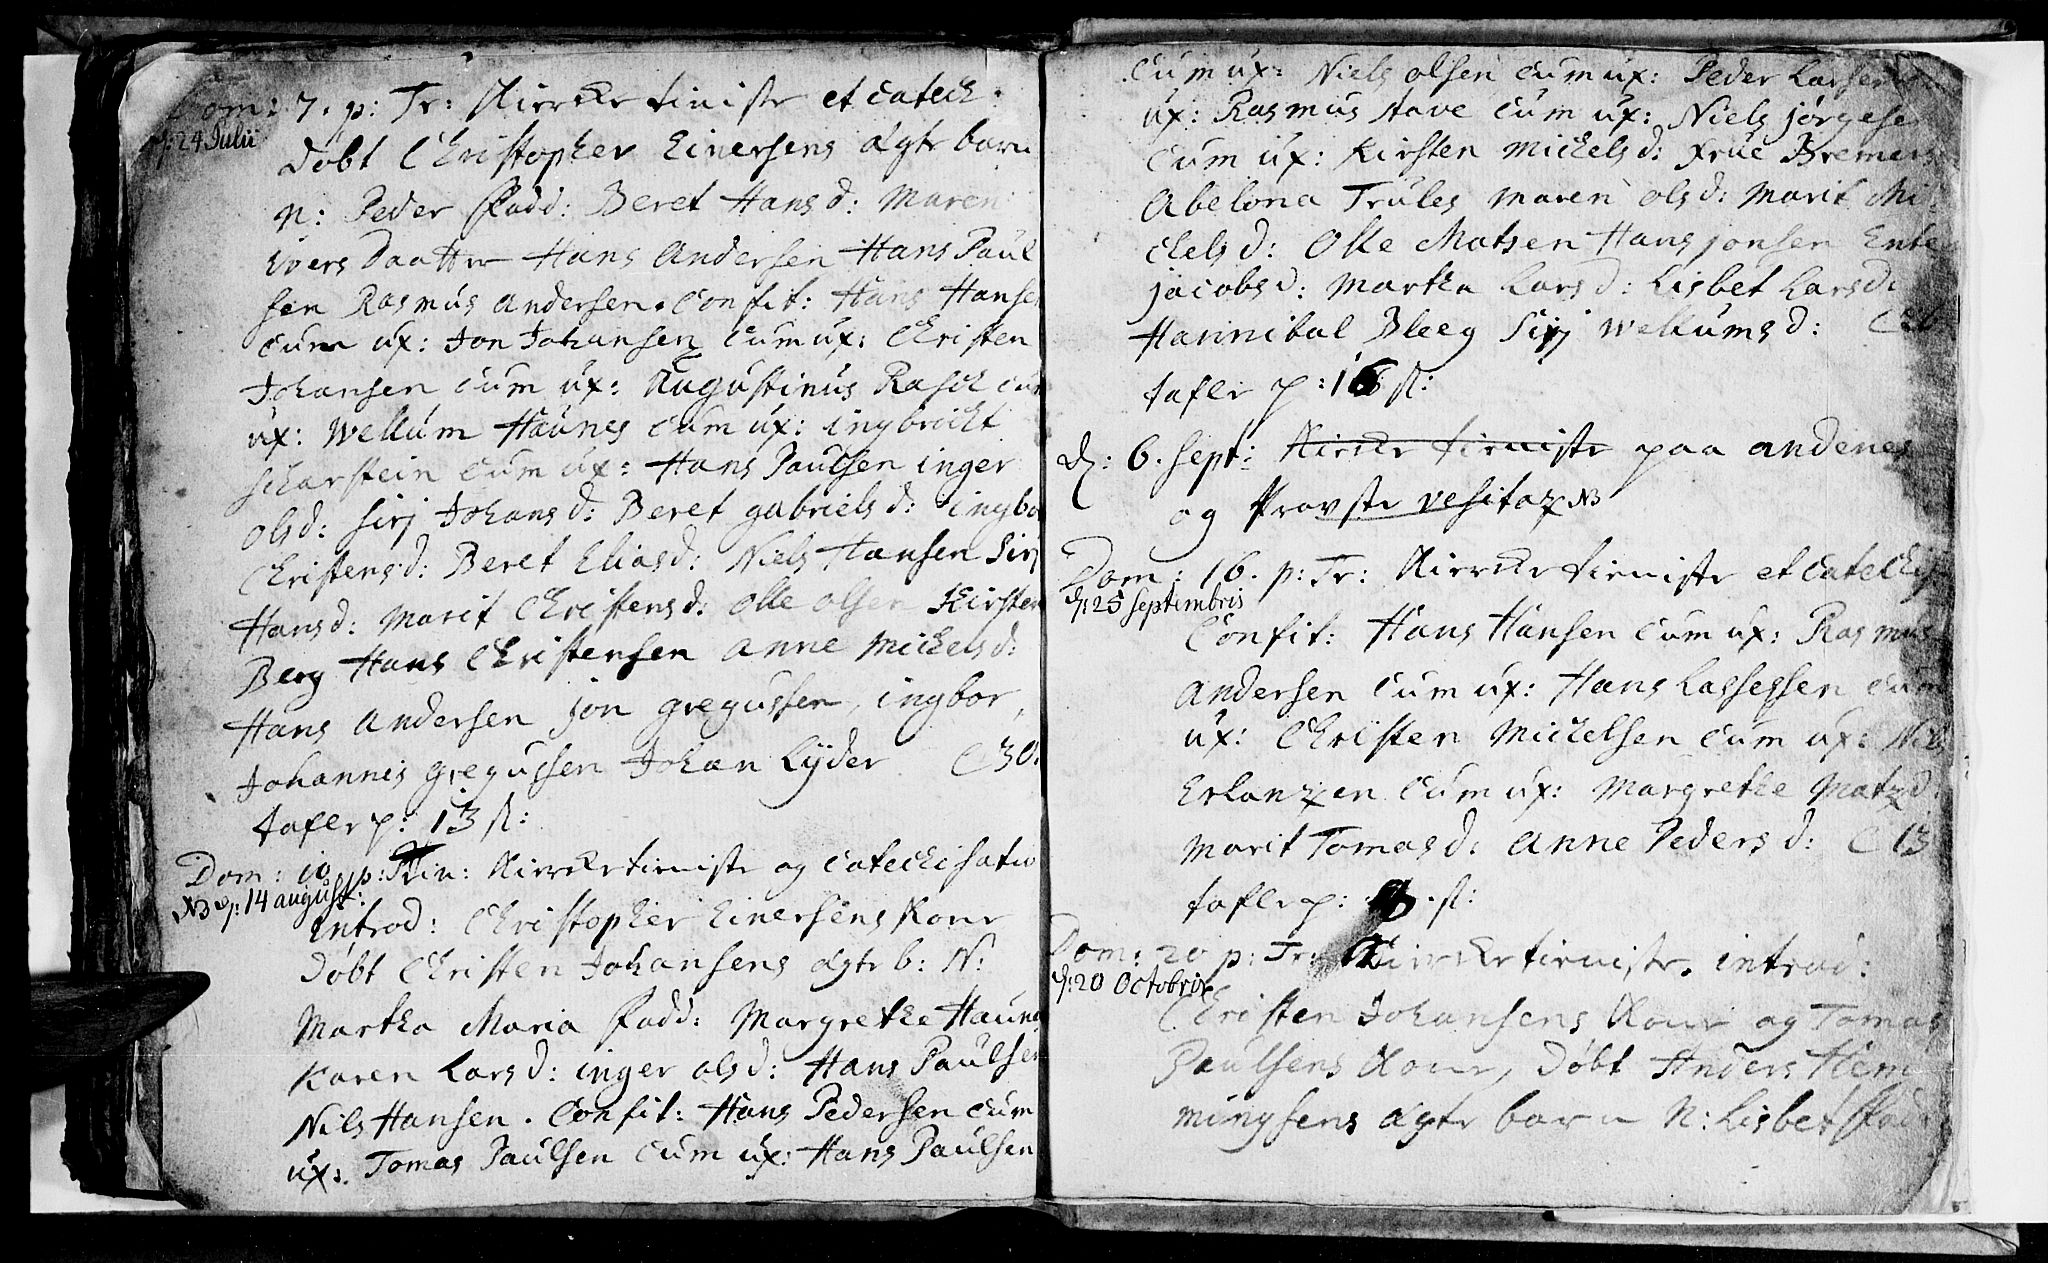 Dom: 7. p: Tr: Kircketieniste et catech:
d: 24 Julii
Døbt Christopher Einersens ægte barn
N: Peder Fadd: Beret Hansd: Maren
Ivers Daatter Hans Andersen Hans Paul
sen Rasmus Andersen. Confit: Hans Hansen
cum ux: Jon Johansen cum ux: Christen
Johansen cum ux: Augustinus Rasch cum
ux: Wellum Haunes cum ux: ingbricht
scharstein cum ux: Hans Paulsen inger
olsd: sirj Johansd: Beret gabrielsd: ingbor
Christensd: Beret Eliasd: Niels Hansen Sirj
Hansd: Marit Christensd: Olle olsen Kirsten
Berg Hans Christensen Anne Michelsd:
Hans Andersen jon gregussen, ingbor,
Johannis gregussen Johan Lyder C 30.
tafle p: 13 sl:
Dom: 10 p: Trin: Kircketieniste og catechisatio
NB d: 14 august:
Introd: Christopher Einersens Kone
Døbt Christen Johansens ægte b: N:
Martha Maria Fadd: Margrethe Haunes
Karen Larsd: inger olsd: Hans Paulsen
Nils Hansen. Confit: Hans Pedersen cum
ux: Tomas Paulsen cum ux: Hans Paulsen
cum ux: Niels olsen cum ux: Peder Larsen
ux: Rasmus stave cum ux: Niels jörgese
cum ux: Kirsten Michelsd: Frue Bremers
Abelona Trules maren olsd: Marit Mi
chelsd: Olle Matsen Hans jonsen Ente
jacobsd: Martha Larsd: Lisbet Larsd:
Hannibal Bleeg Sirj Wellumsd:
tafle p: 16 sl:
d: 6. sept: Kircketieniste paa andenes
og Provste vesitaz NB
Dom: 16. p: Tr: Kircketieniste et catechis
d: 25 septembris
Confit: Hans Hansen cum ux: Rasmus
Andersen cum ux: Hans Lassessen cum
ux: Christen Michelsen cum ux: Niels
Erlanzen cum ux: Margrethe Matzd:
Marit Tomasd: Anne Pedersd: C 13
tafle p: sl:
Dom: 20 p: Tr: Kircketieniste. introd:
d: 20 Octobris
Christen Johansens Kone og Tomas
Paulsens Kone, Døbt Anders Hem
mingsens ægte barn N: Lisbet Fadd